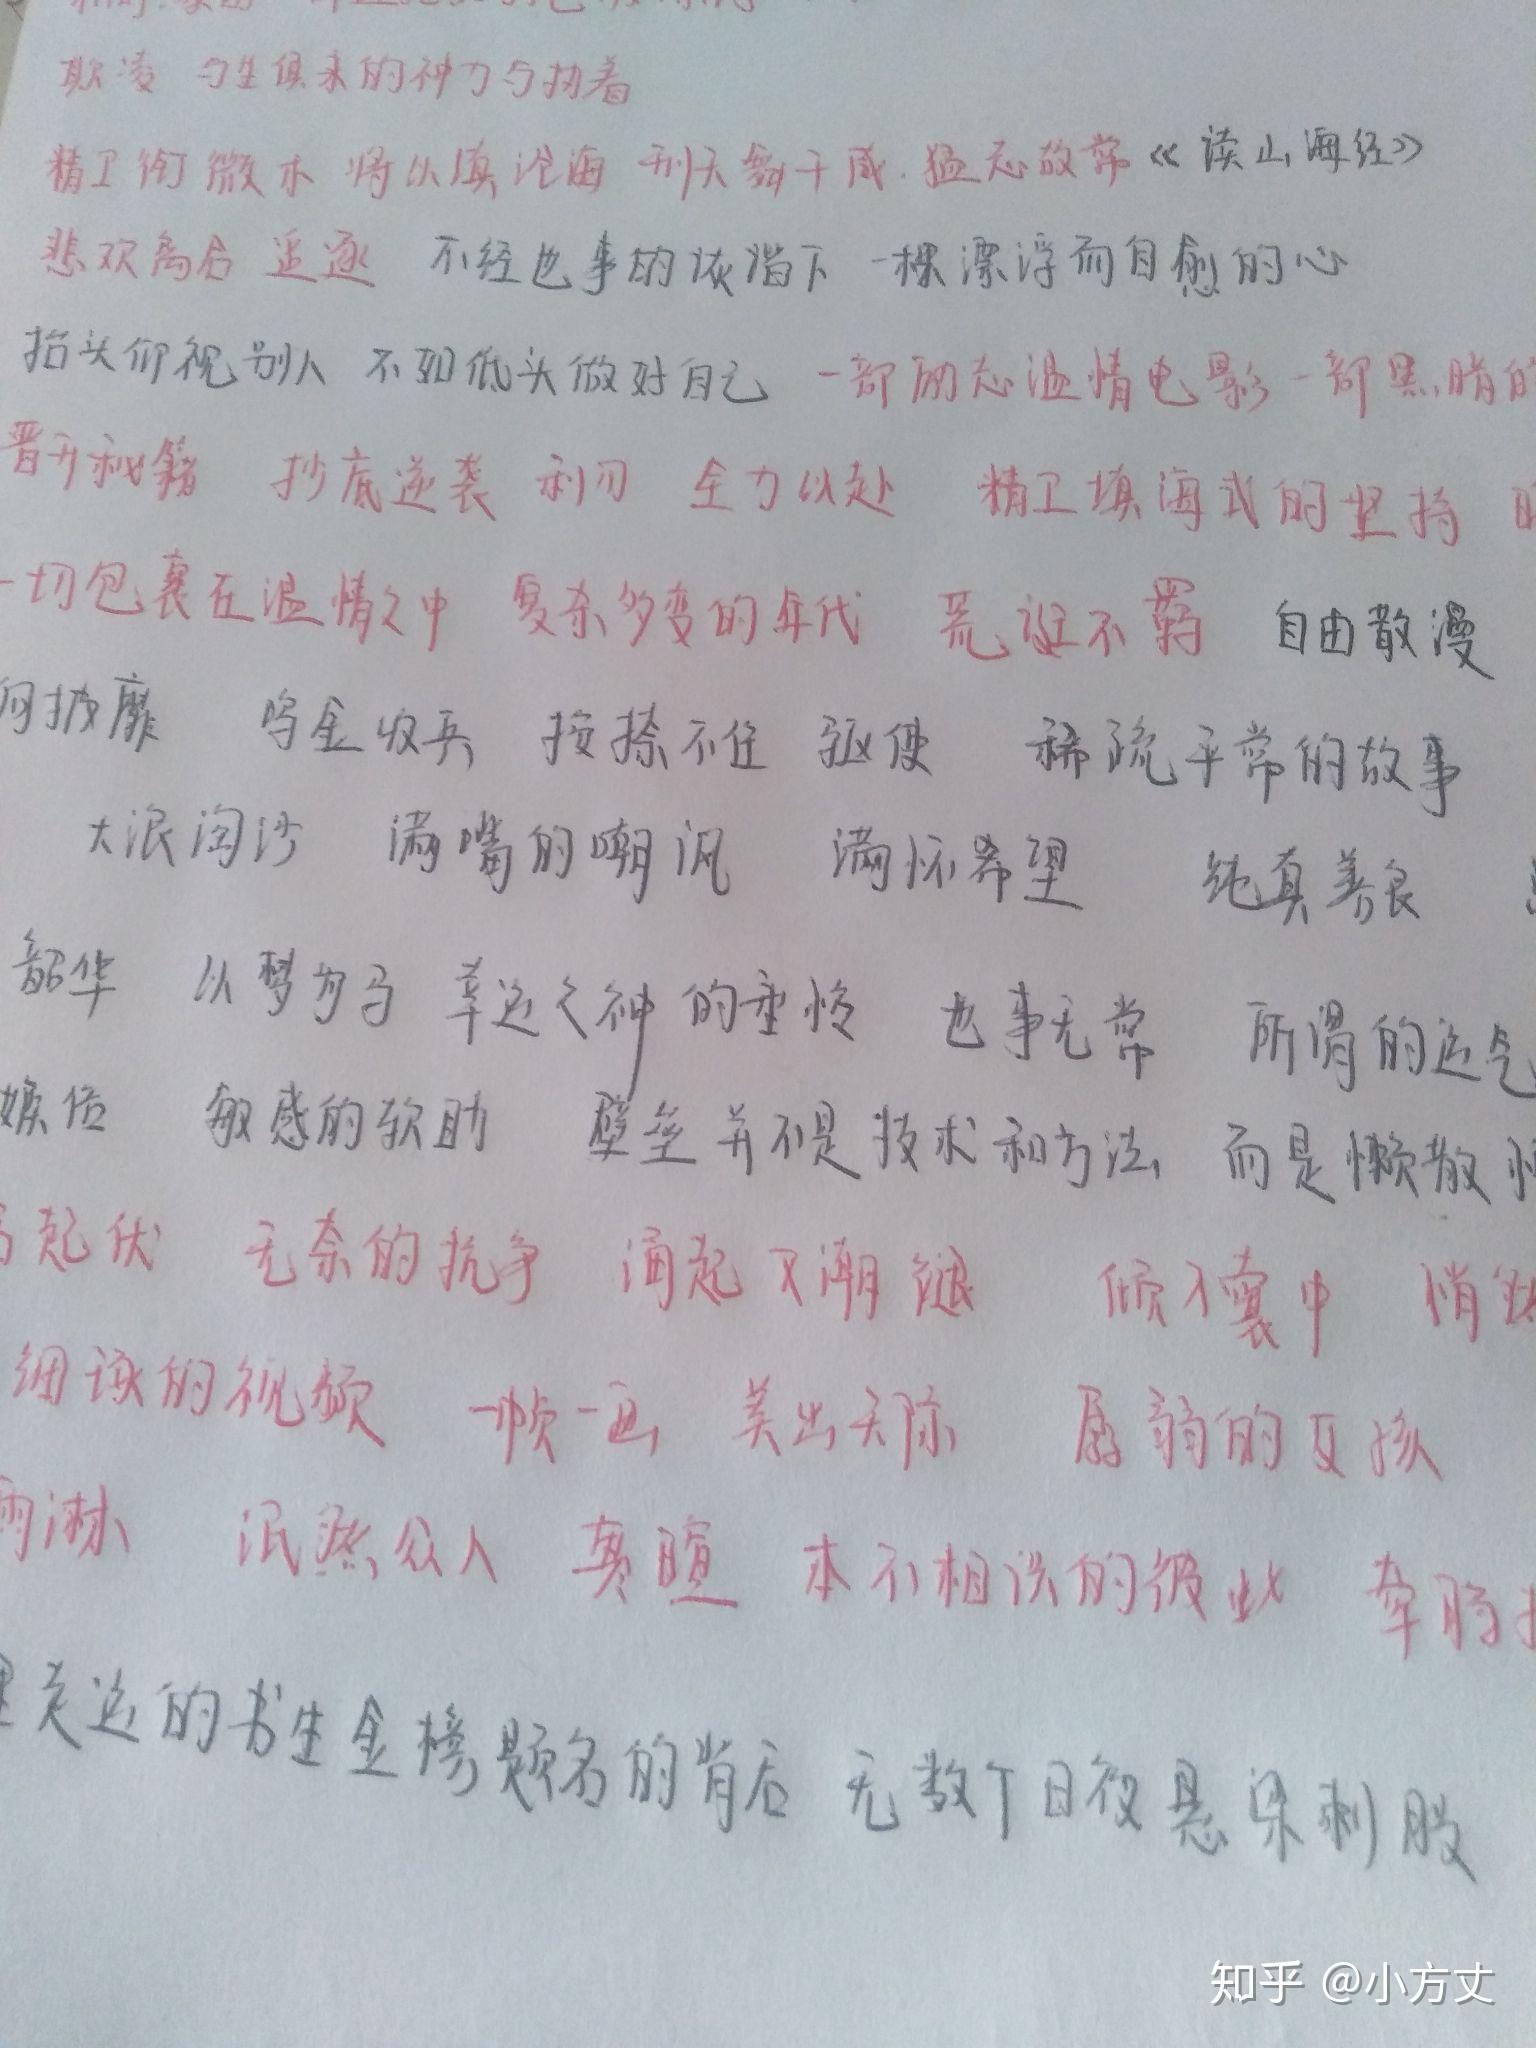 欺凌 与生俱来的神力与执着
精卫衔微木 将以填沧海 刑天舞干戚.猛志故常《读山海经》
悲欢离合 追逐 不经世事的诙谐下 一棵漂浮而自愈的心
抬头仰视别人 不如低头做好自己 一部励志温情电影 一部黑暗的
晋升秘籍 抄底逆袭 利刃 全力以赴 精卫填海式的坚持
一切包裹在温情之中 复杂多变的年代 荒诞不羁 自由散漫
披靡 鸣金收兵 按捺不住 驱使 稀疏平常的故事
大浪淘沙 满嘴的嘲讽 满怀希望 纯真善良
韶华 以梦为马 幸运之神的垂怜 世事无常 所谓的运气
敏感的软肋 壁垒并不是技术和方法 而是懒散
起伏 无奈的抗争 涌起又潮褪 倾囊中
的视频 一帧一画 美出天际 孱弱的女孩
雨淋 泯然众人 寒暄 本不相识的彼此 牵肠
的书生金榜题名的背后 无数个日夜悬梁刺股
知乎 @小方丈